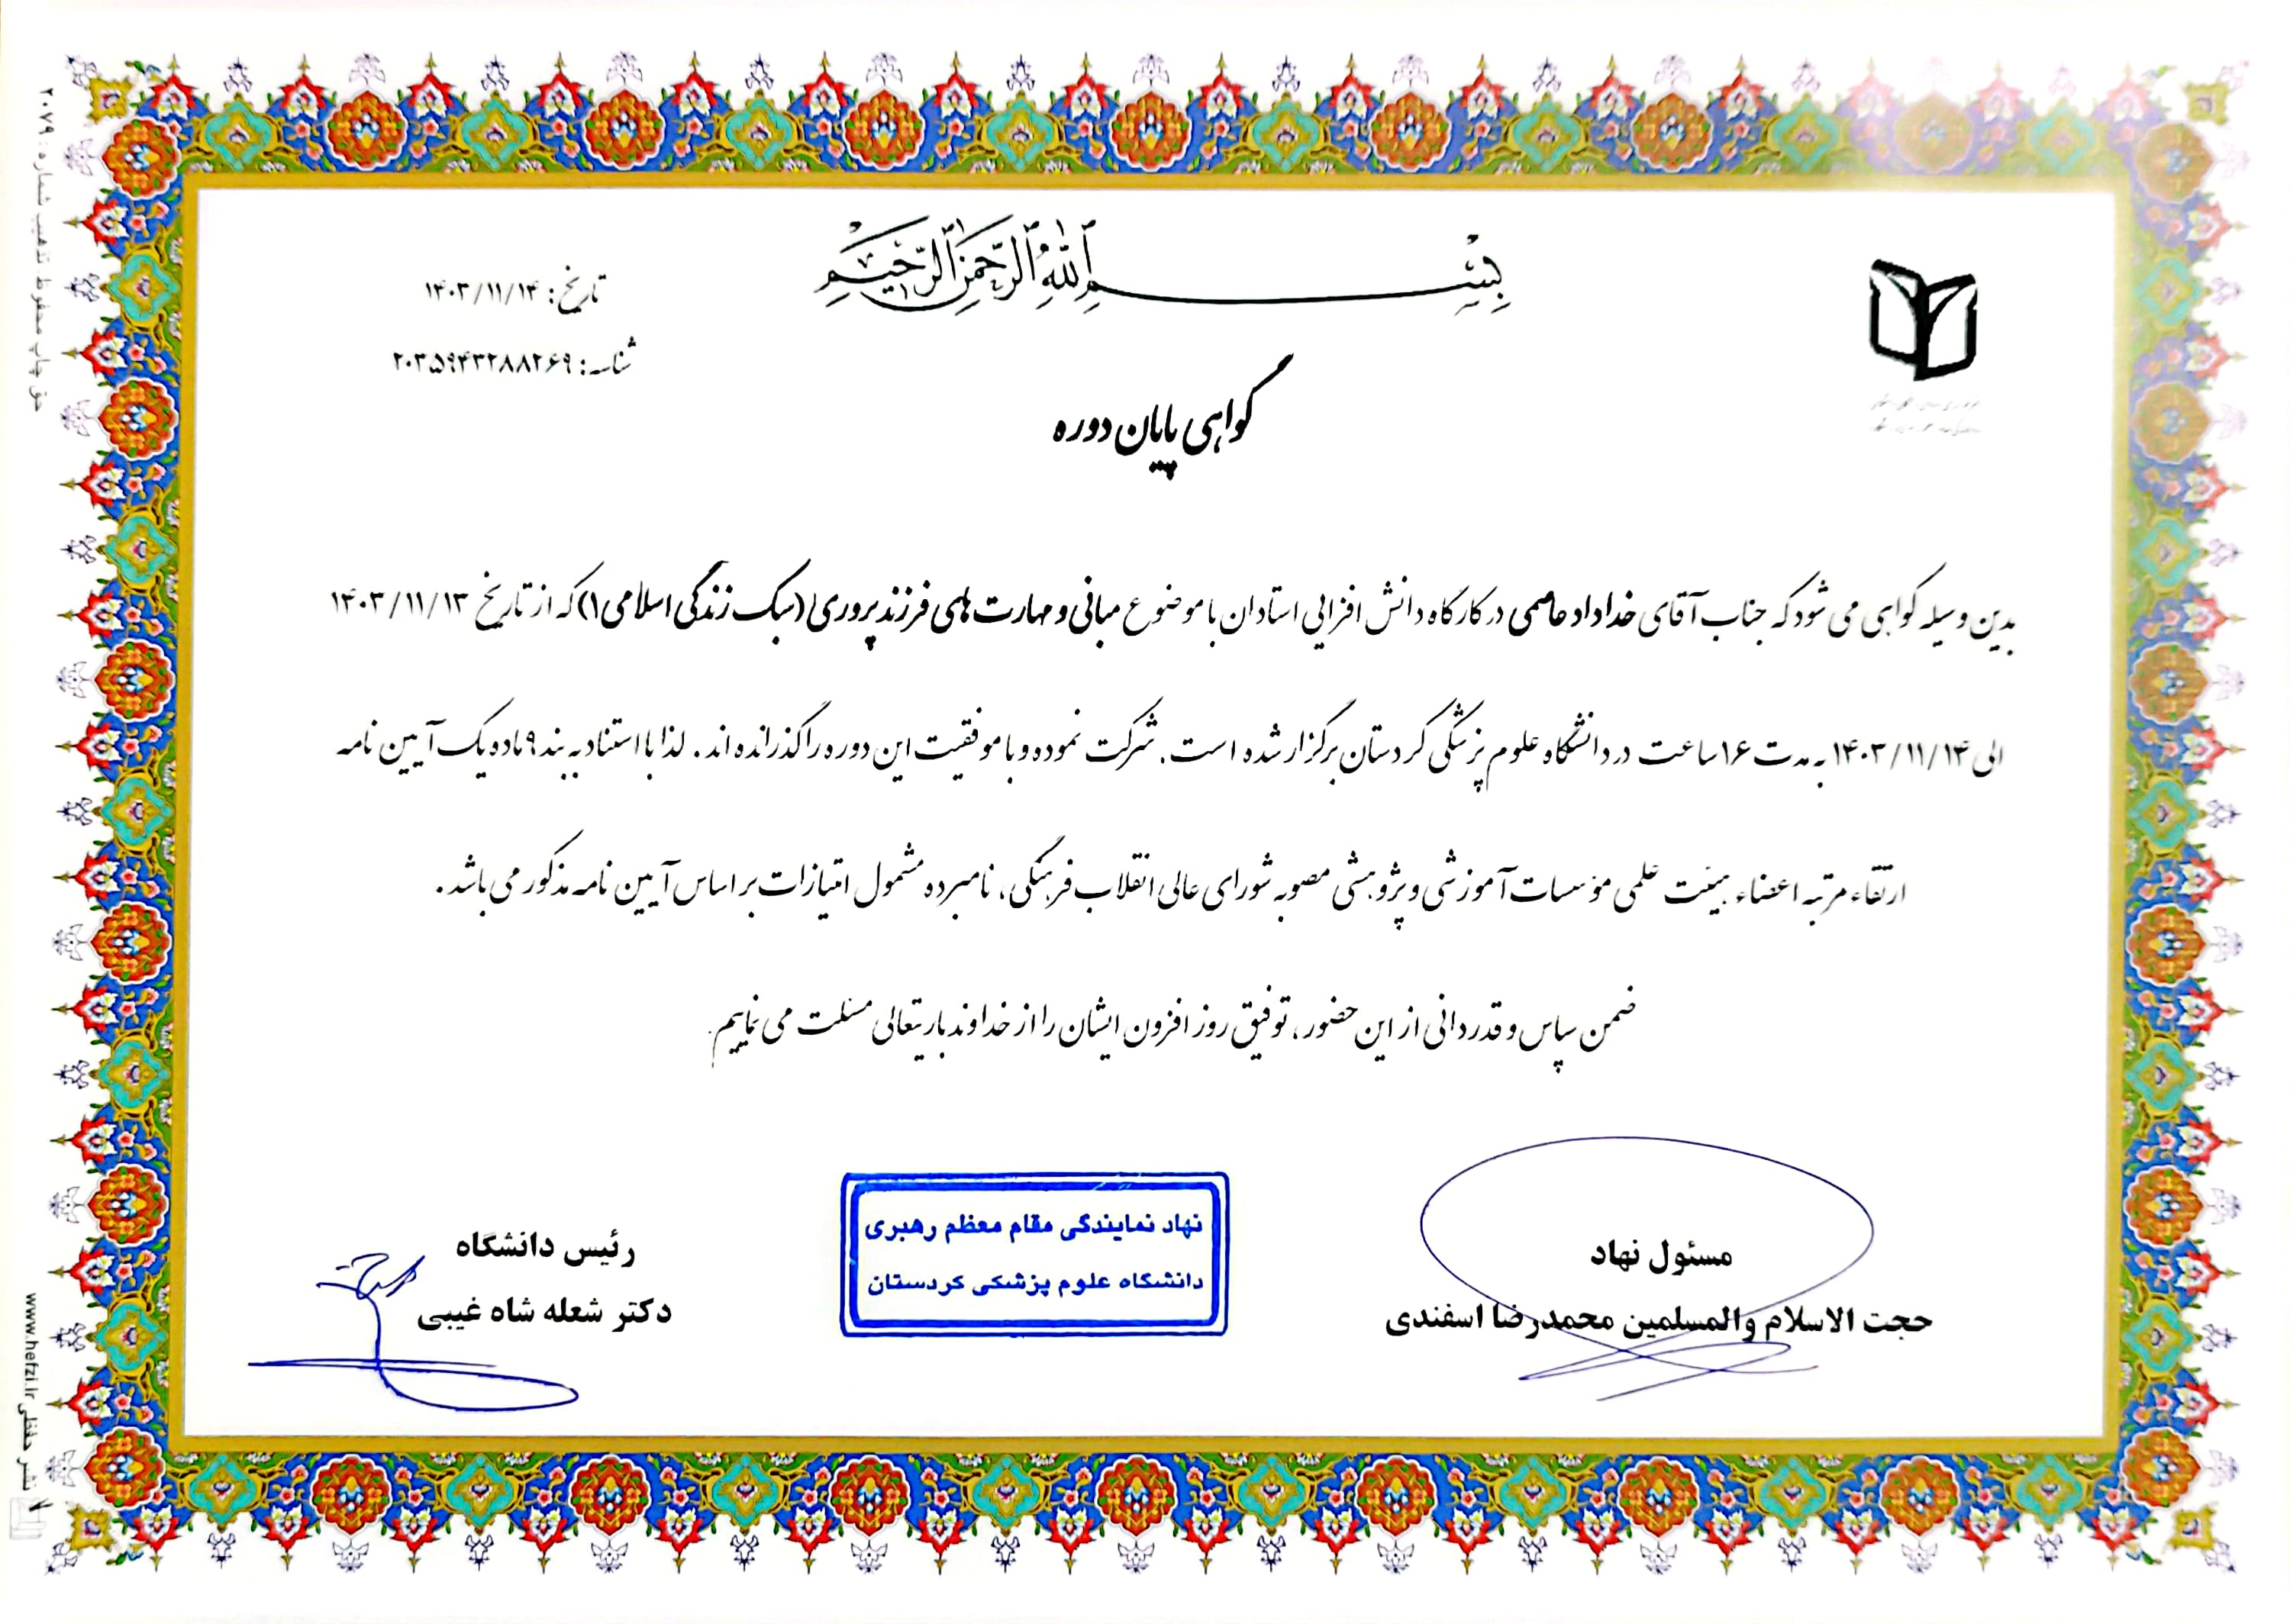 بسم الله الرحمن الرحیم
تاریخ: ۱۴۰۳/۱۱/۱۴
شناسه: ۲۰۳۵۹۴۳۲۸۸۲۶۹
گواهی پایان دوره
بدین وسیله گواهی می شود که جناب آقای خداداد عاصمی در کارگاه دانش افزایی استادان با موضوع مبانی و مهارت های فرزندپروری۱ (سبک زندگی اسلامی۱) که از تاریخ ۱۴۰۳/۱۱/۱۳
الی ۱۴۰۳/۱۱/۱۴ به مدت ۱۶ ساعت در دانشگاه علوم پزشکی کردستان برگزار شده است. شرکت نموده و با موفقیت این دوره را گذرانده اند. لذا با استناد به بند ۹ ماده یک آیین نامه
ارتقاء مرتبه اعضاء هیئت علمی مؤسسات آموزشی و پژوهشی مصوبه شورای عالی انقلاب فرهنگی، نامبرده مشمول امتیازات بر اساس آیین نامه مذکور می باشد.
ضمن سپاس و قدردانی از این حضور، توفیق روز افزون ایشان را از خداوند باریتعالی مسئلت می نماییم.
مسئول نهاد
حجت الاسلام والمسلمین محمدرضا اسفندی
نهاد نمایندگی مقام معظم رهبری
دانشگاه علوم پزشکی کردستان
رئیس دانشگاه
دکتر شعله شاه غیبی
حق چاپ محفوظ. تذهیب شماره: ۲۰۷۹
نشر حفظی www.hefzi.ir